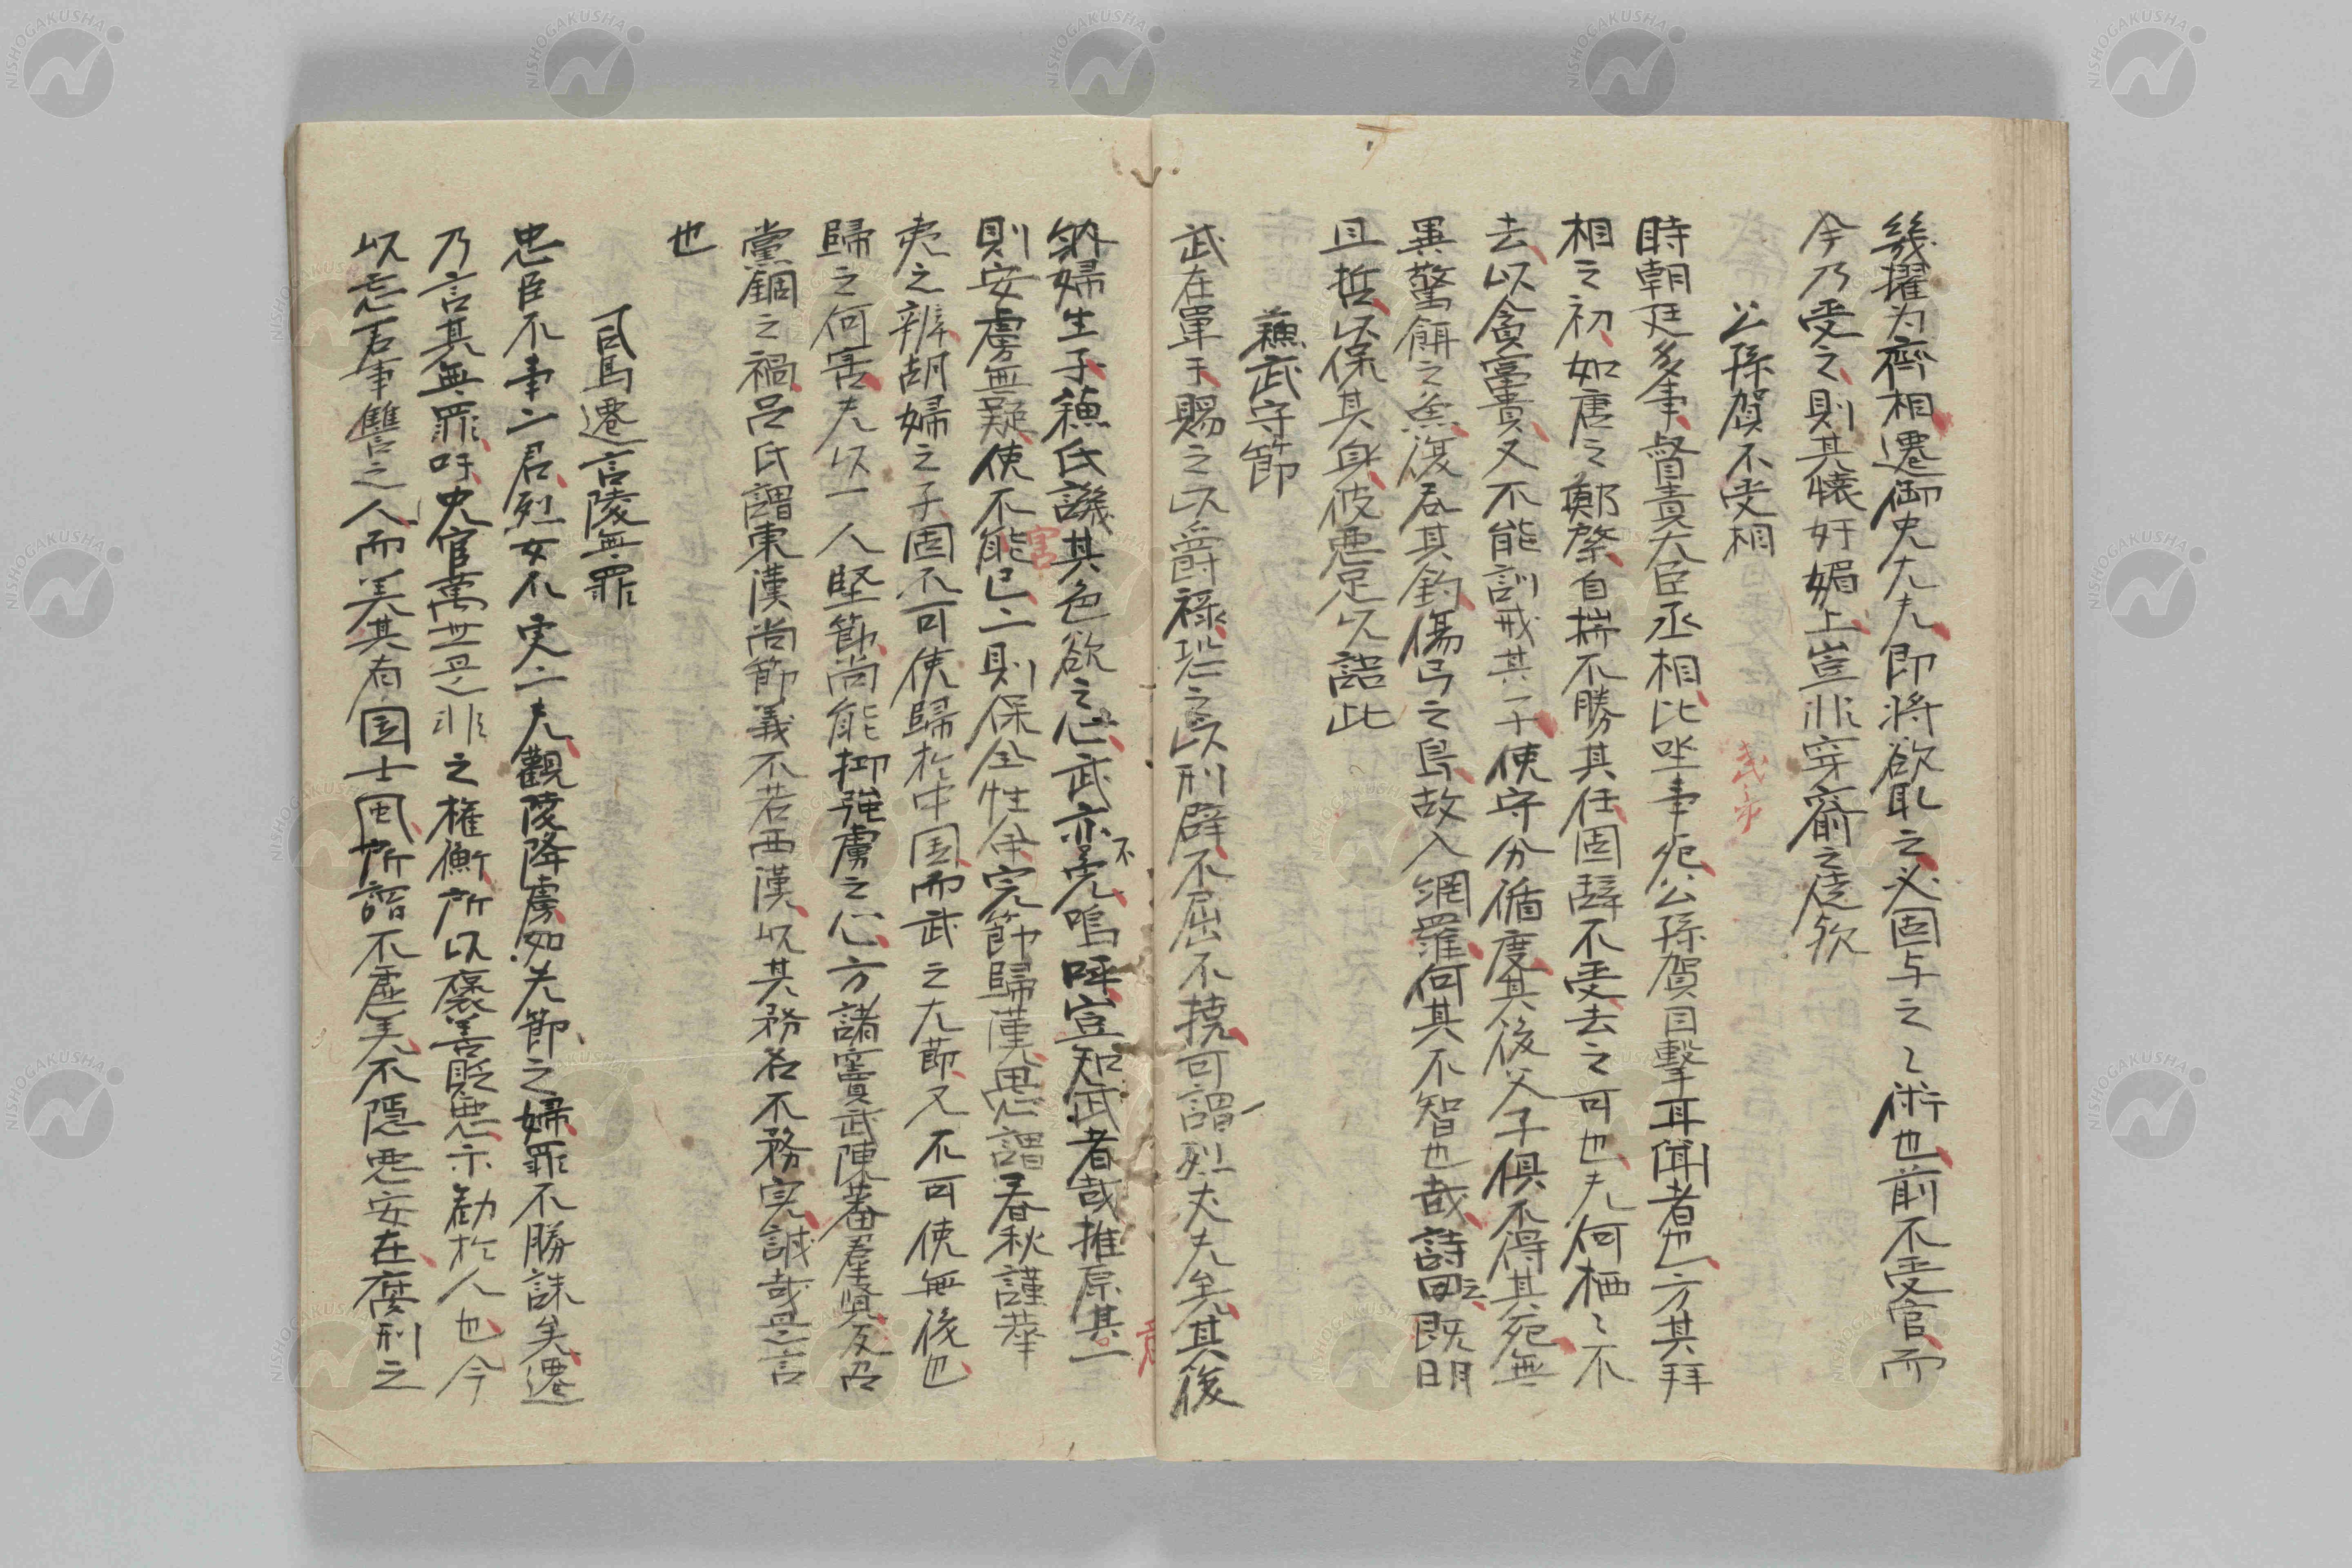 幾擢为齊相遷御史大夫即将欲取之必固与之之術也前不受官而
今乃受之則其懐奸媚上豈非穿窬之徒欤
公孫賀不受相
武帝
時朝廷多事督責大臣丞相比坐事死公孫賀目擊耳聞者也方其拜
相之初如唐之鄭綮自揣不勝其任固辞不受去之可也夫何栖〻不
去以貪富貴又不能訓戒其子使守分循度其後父子俱不得其死無
異驚餌之魚復吞其釣傷弓之鳥故入網羅何其不智也哉詩曰既明
且哲以保其身彼悪足以語此
蘓武守節
武在單于賜之以爵禄之以刑辟不屈不撓可謂烈丈夫矣其後
納婦生子蘓氏譏其色欲之心武亦不免嗚呼豈知武者哉推原其一
則安虜無疑使不能害已二則保全性命完節歸漢愚謂春秋謹華
夷之辨胡婦之子固不可使歸於中国而武之大節又不可使無後也
歸之何害夫以一人堅節尚能抑強虜之心方諸竇武陳蕃羣賢反召
黨錮之禍呂氏謂東漢尚節義不若西漢以其務名不務実誠哉是言
也
司馬遷言陵無罪
忠臣不事二君烈女不更二夫觀陵降虜如失節之婦罪不勝誅矣遷
乃言其無罪吁史官萬世是非之権衡所以褒善貶悪示勧於人也今
以忘君事讐之人而美其有国士風所謂不虚美不隠悪安在腐刑之